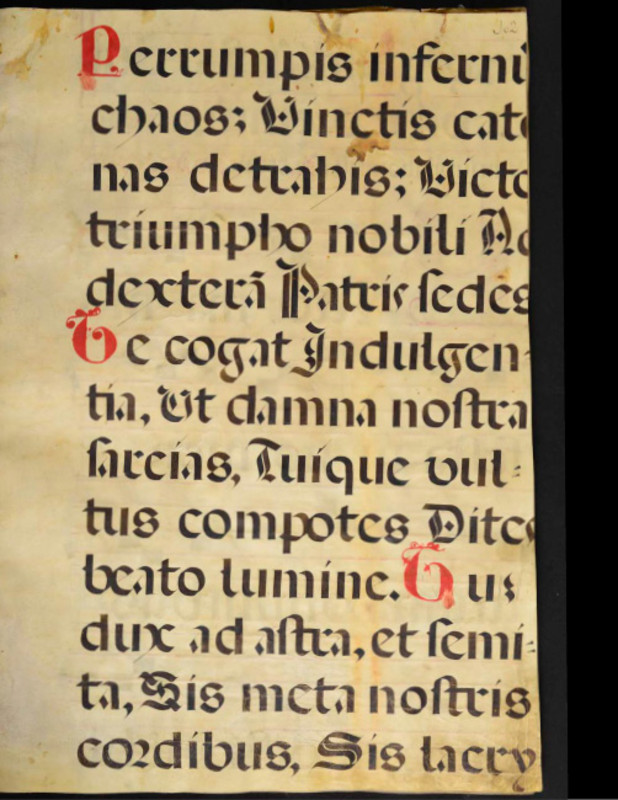 Perrumpis inferni
chaos; Vinctis cate
nas detrahis; Victo
triumpho nobili Ad
dexterā Patris sedes
Te cogat Indulgen-
tia, Ut damna nostra
sarcias, Tuique vul-
tus compotes Dites
beato lumine. Tu s
dux ad astra, et semi-
ta, Sis meta nostris
cordibus, Sis lacry